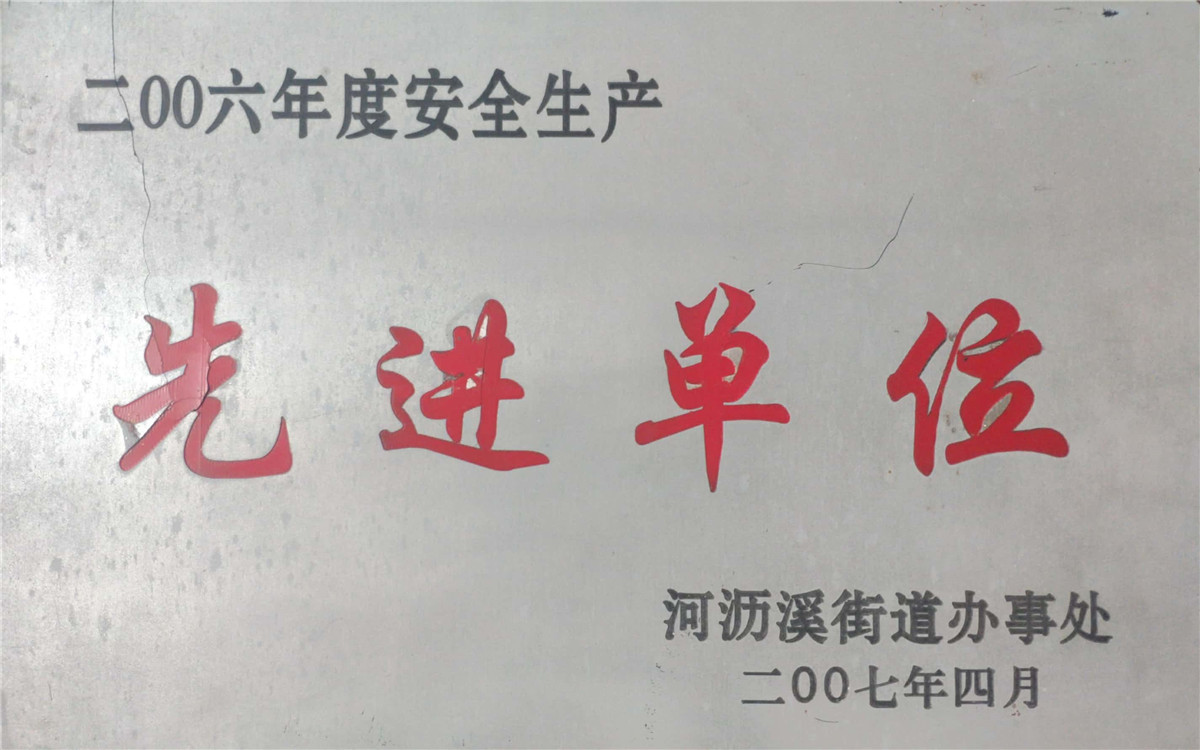 二00六年度安全生产
先进单位
河沥溪街道办事处
二00七年四月